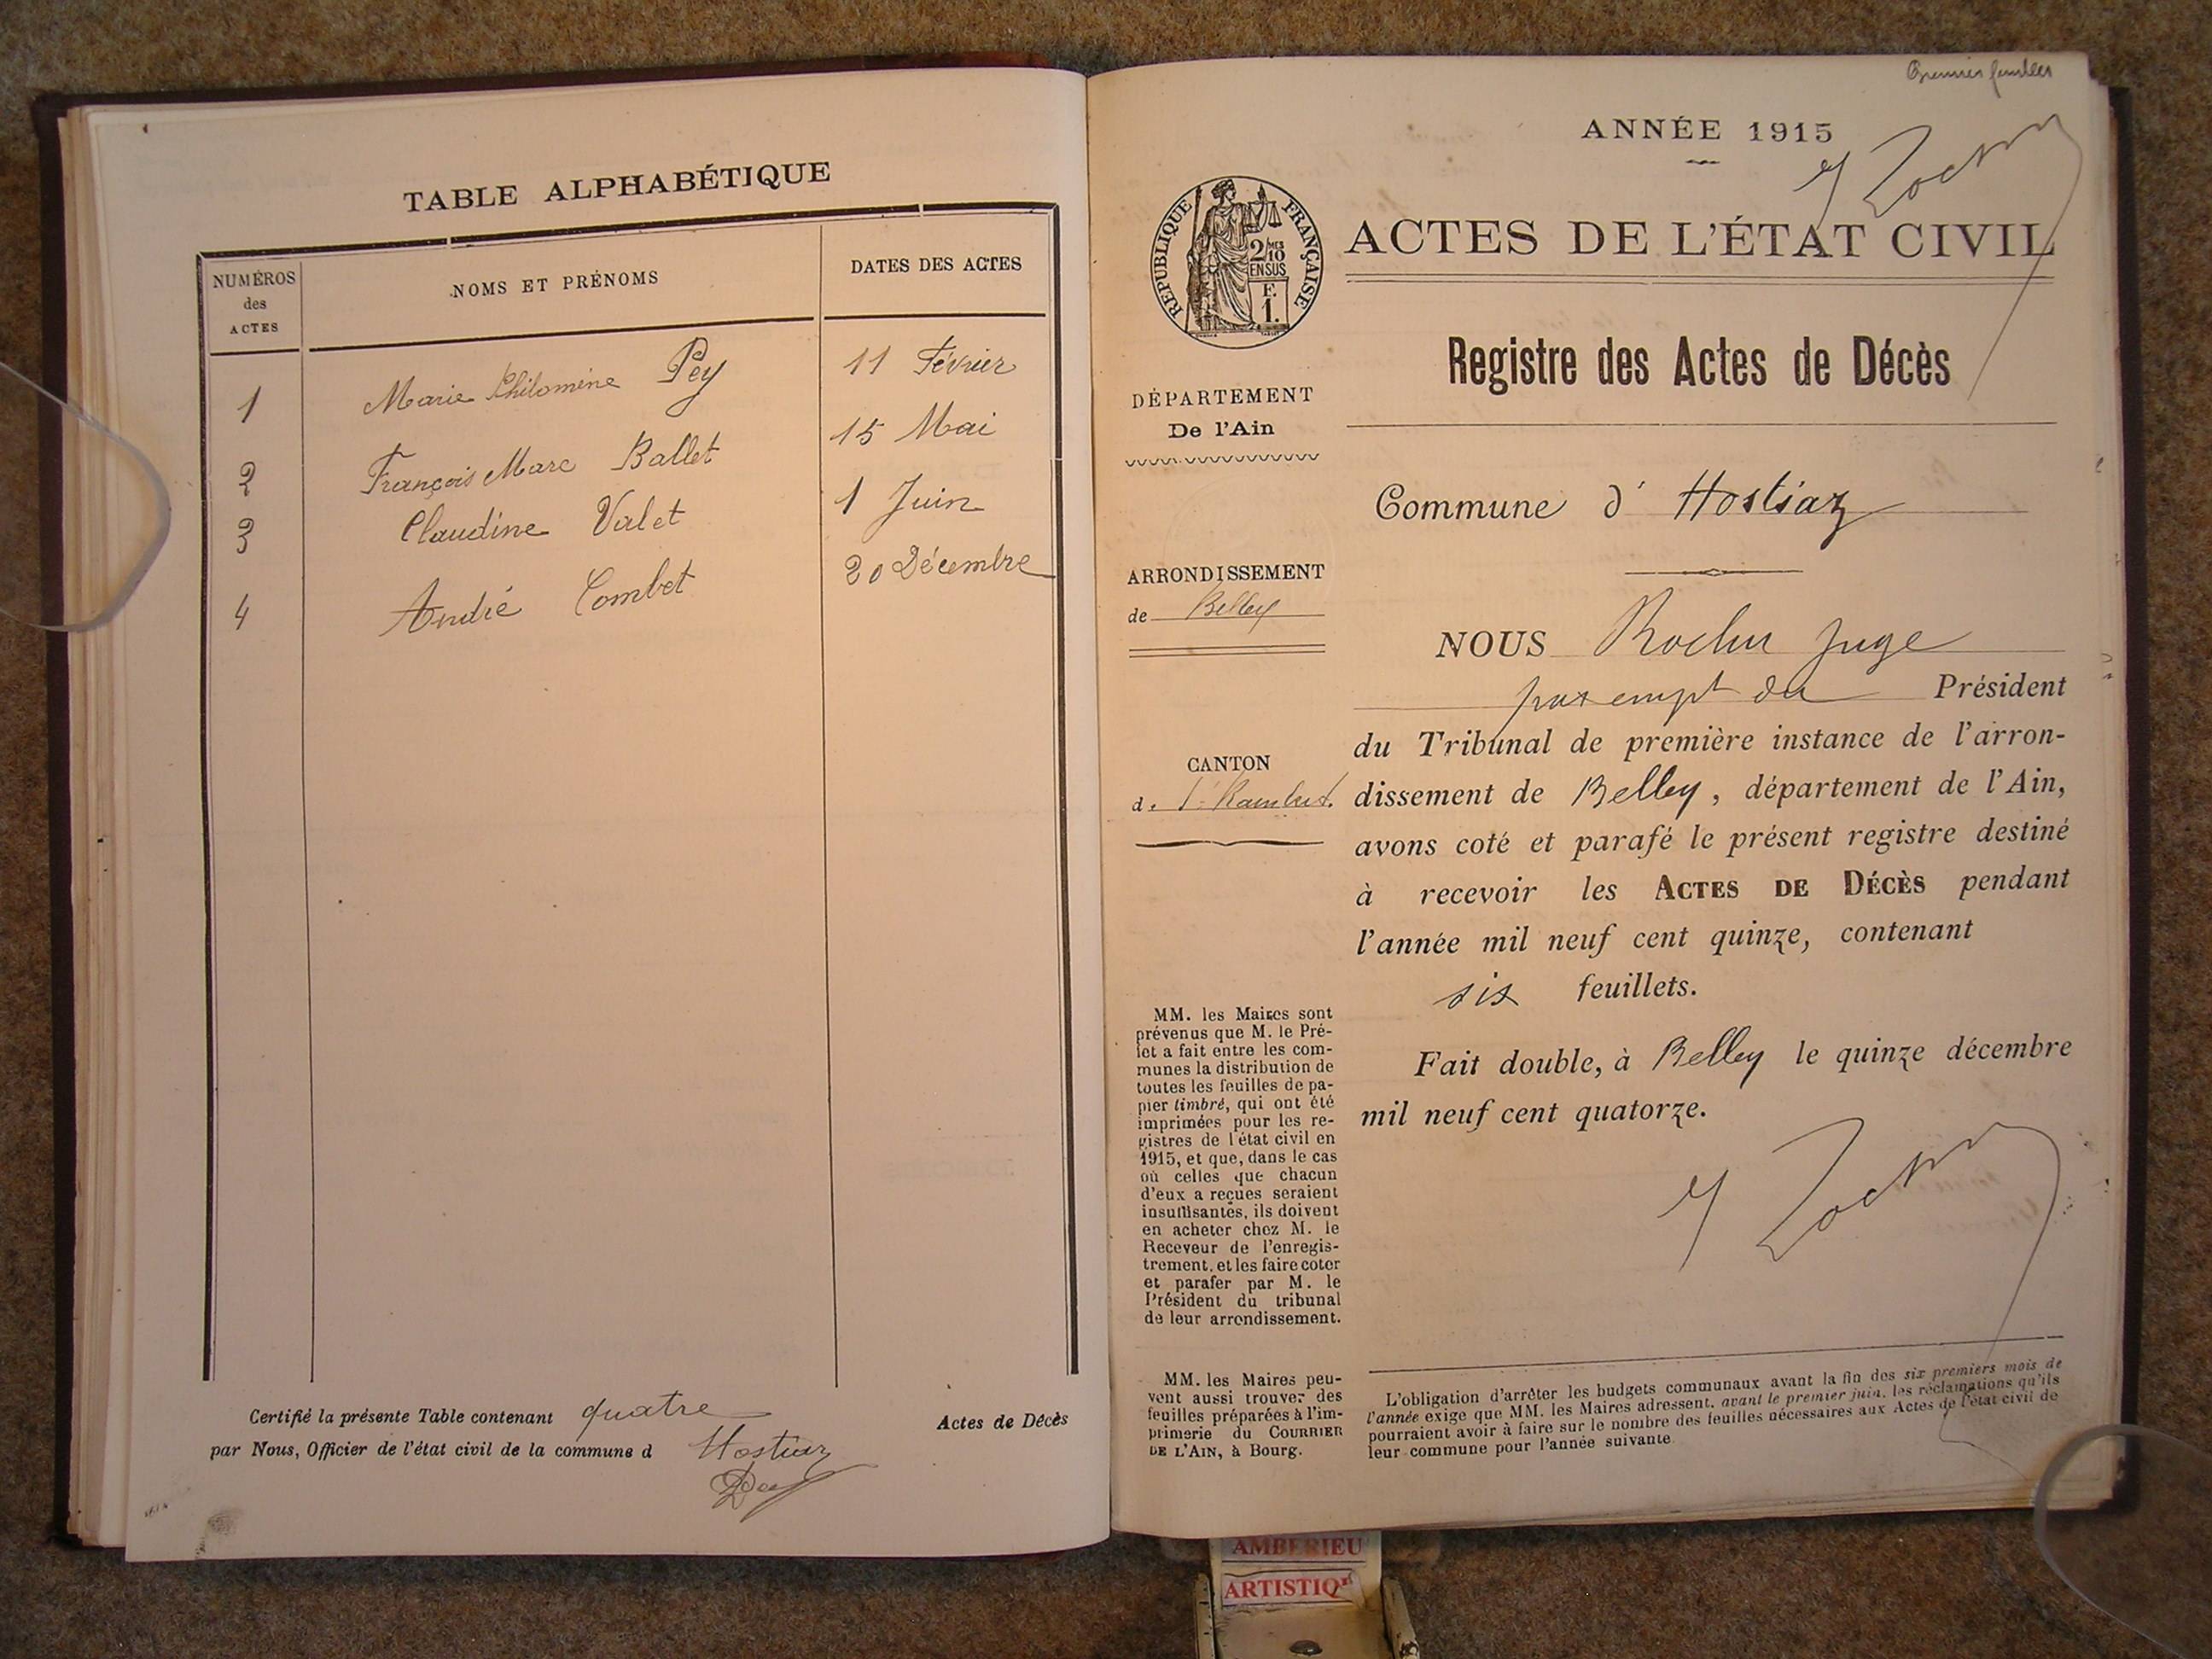 TABLE ALPHABÉTIQUE
NUMÉROS
des
ACTES
NOMS ET PRÉNOMS
DATES DES ACTES
1 Marie Philomène Pey 11 Février
2 François Marc Ballet 15 Mai
3 Claudine Valet 1 Juin
4 André Combet 20 Décembre
Certifié la présente Table contenant quatre Actes de Décès
par Nous, Officier de l'état civil de la commune d Hostiaz
Premier feuillet
ANNÉE 1915
RÉPUBLIQUE FRANÇAISE
2/10 MES
EN SUS
F.
1.
ACTES DE L'ÉTAT CIVIL
Registre des Actes de Décès
DÉPARTEMENT
De l'Ain
Commune d' Hostiaz
ARRONDISSEMENT
de Belley
CANTON
de St Rambert.
NOUS Rocher Juge
par empt du Président
du Tribunal de première instance de l'arron-
dissement de Belley, département de l'Ain,
avons coté et parafé le présent registre destiné
à recevoir les ACTES DE DÉCÈS pendant
l'année mil neuf cent quinze, contenant
six feuillets.
Fait double, à Belley le quinze décembre
mil neuf cent quatorze.
MM. les Maires sont
prévenus que M. le Pré-
fet a fait entre les com-
munes la distribution de
toutes les feuilles de pa-
pier timbré, qui ont été
imprimées pour les re-
gistres de l'état civil en
1915, et que, dans le cas
où celles que chacun
d'eux a reçues seraient
insuffisantes, ils doivent
en acheter chez M. le
Receveur de l'enregis-
trement, et les faire coter
et parafer par M. le
Président du tribunal
de leur arrondissement.
MM. les Maires peu-
vent aussi trouver des
feuilles préparées à l'im-
primerie du COURRIER
DE L'AIN, à Bourg.
L'obligation d'arrêter les budgets communaux avant la fin des six premiers mois de
l'année exige que MM. les Maires adressent, avant le premier juin, les réclamations qu'ils
pourraient avoir à faire sur le nombre des feuilles nécessaires aux Actes de l'état civil de
leur commune pour l'année suivante.
AMBERIEU
ARTISTIQ